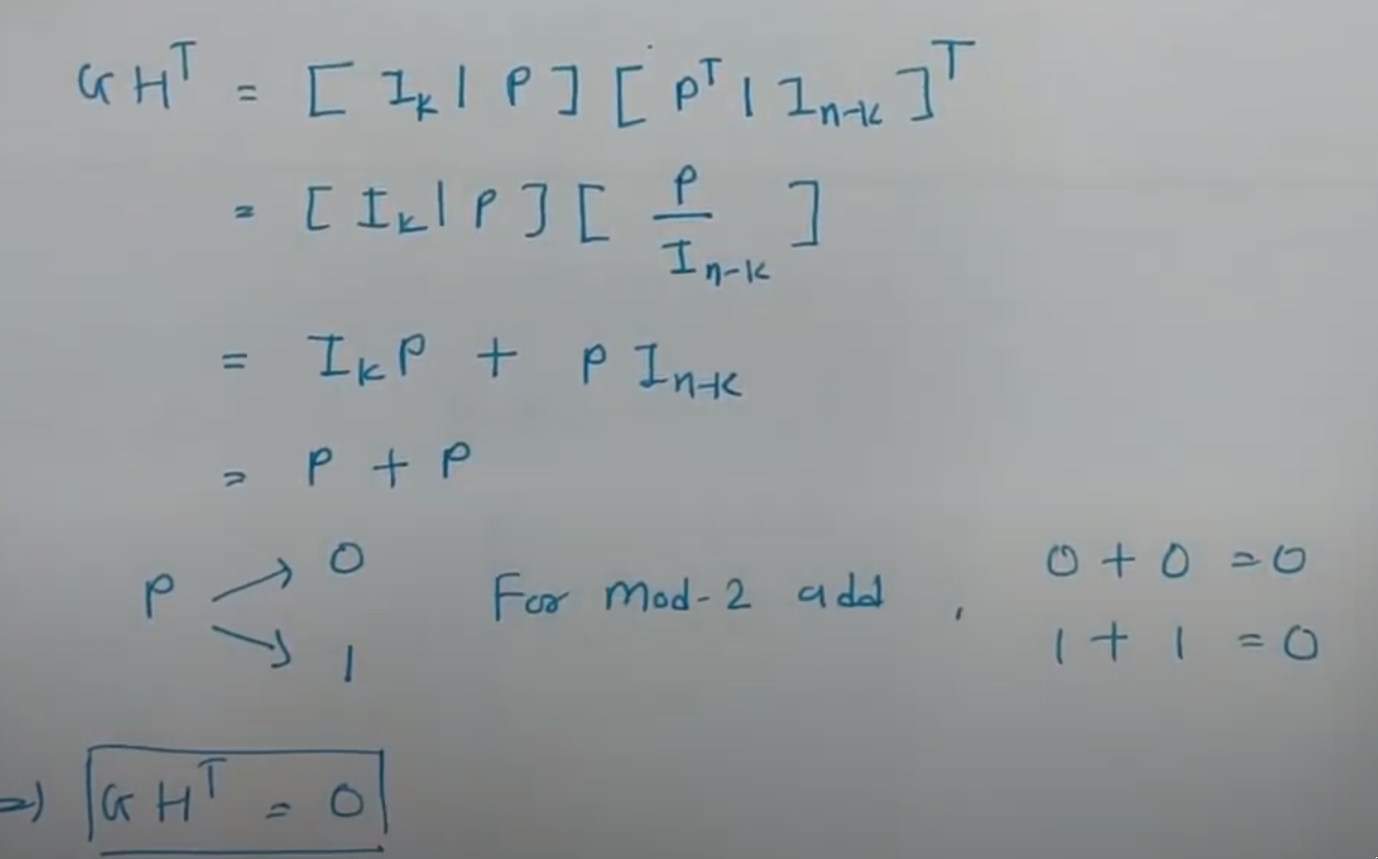 G Hᵀ = [ Iₖ | P ] [ Pᵀ | Iₙ₋ₖ ]ᵀ
= [ Iₖ | P ] [ P / Iₙ₋ₖ ]
= Iₖ P + P Iₙ₋ₖ
= P + P
P → 0 → 1 For mod-2 add , 0 + 0 = 0
1 + 1 = 0
⇒ G Hᵀ = 0